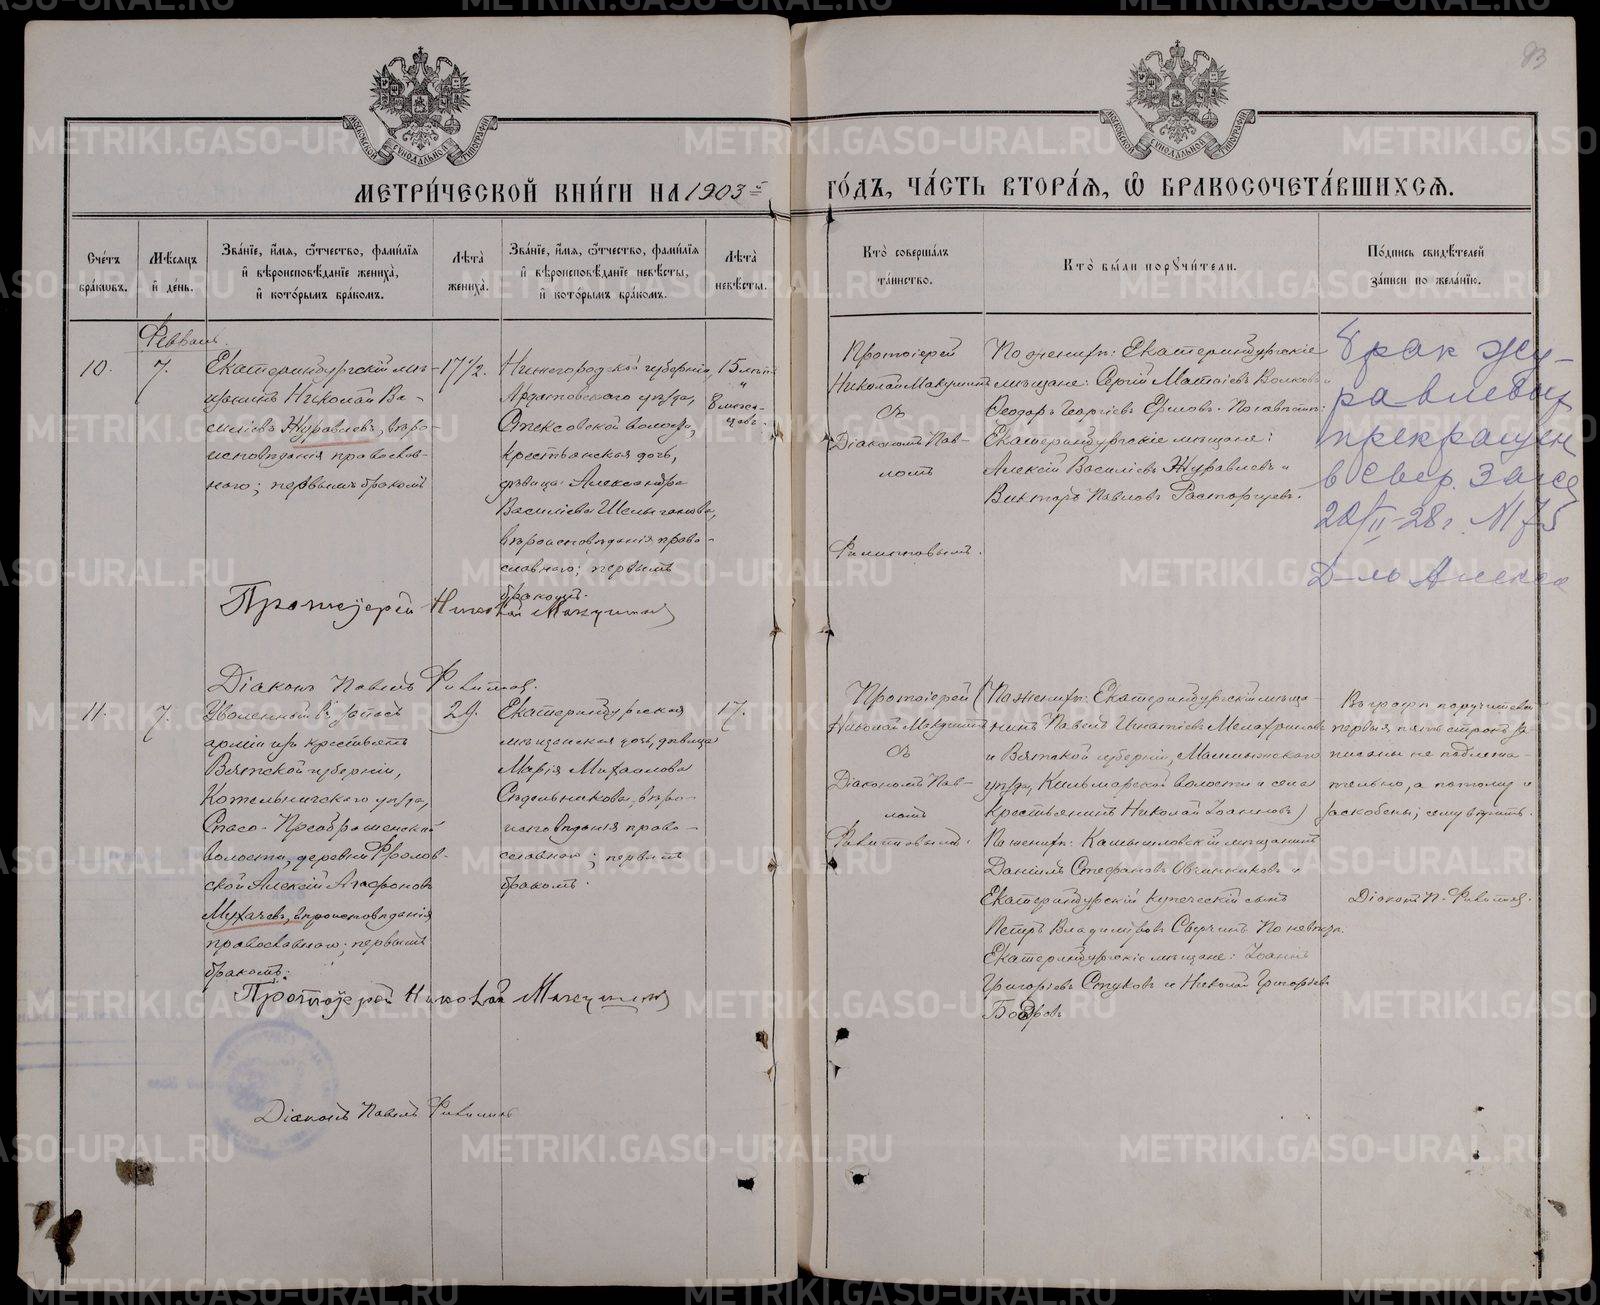 83
МЕТРИ́ЧЕСКОЙ КНИ́ГИ НА 1903й
ГО́ДЪ, ЧА́СТЬ ВТОРА́Я, Ѿ БРАКОСОЧЕТА́ВШИХСЯ.
Сче́тъ бра́ковъ.
Мѣ́сяцъ и҆ де́нь.
Зва́нїе, и҆́мя, ѻ҆́тчество, фами́лїя и҆ вѣроисповѣ́данїе жениха̀, и҆ кото́рымъ бра́комъ.
Лѣта̀ жениха̀.
Зва́нїе, и҆́мя, ѻ҆́тчество, фами́лїя и҆ вѣроисповѣ́данїе невѣ́сты, и҆ кото́рымъ бра́комъ.
Лѣта̀ невѣ́сты.
Кто̀ соверша́лъ та́инство.
Кто̀ бы́ли поручи́тели.
По́дпись свидѣ́телей за́писи по жела́нїю.
Февраль.
10.
7.
Екатеринбургскій мѣ-
щанинъ Николай Ва-
силіевъ Журавлевъ, вѣро-
исповѣданія православ-
наго; первымъ бракомъ
17 1/2.
Нижегородской губерніи,
Ардатовскаго уѣзда,
Стексовской волости,
крестьянская дочь,
дѣвица Александра
Василіева
вѣроисповѣданія право-
славнаго; первымъ
бракомъ.
15 лѣтъ
и
8 мѣся-
цевъ.
Протоіерей
Николай
съ
Діакономъ Пав-
ломъ
По женихѣ: Екатеринбургскіе
мѣщане: Сергій Матѳіевъ Волковъ и
Ѳеодоръ Георгіевъ Ершовъ. По невѣстѣ:
Екатеринбургскіе мѣщане:
Алексій Василіевъ Журавлевъ и
Викторъ Павловъ Расторгуевъ.
брак Жу-
равлевых
прекращен
в Свер. Загсе
20/II-28 г. №75
Д-ль
Протоіерей Николай
Діаконъ Павелъ
11.
7.
Уволенный въ запасъ
арміи изъ крестьянъ
Вятской губерніи,
Котельничскаго уѣзда,
Спасо-Преображенской
волости, деревни Фролов-
ской Алексій Агафоновъ
Мухачевъ, вѣроисповѣданія
православнаго; первымъ
бракомъ.
29.
Екатеринбургская
мѣщанская дочь, дѣвица
Марія Михаилова
Сѣдельникова, вѣро-
исповѣданія право-
славнаго; первымъ
бракомъ.
17.
Протоіерей
Николай
съ
Діакономъ Пав-
ломъ
(По женихѣ: Екатеринбургскій мѣща-
нинъ Павелъ Игнатіевъ
и Вятской губерніи, Малмыжскаго
уѣзда, Кильмезской волости и села
крестьянинъ Николай Іоанновъ)
По женихѣ: Камышловскій мѣщанинъ
Даніилъ Стефановъ Овчинниковъ и
Екатеринбургскій купеческій сынъ
Петръ Владиміровъ По невѣстѣ:
Екатеринбургскіе мѣщане: Іоаннъ
Григорьевъ и Николай Григорьевъ
Бобровъ
Въ графѣ поручителей
первыя пять строкъ за-
писаны не подлежа-
тельно, а потому и
раскоблены; сему вѣрить.
Діаконъ П.
Протоіерей Николай
Діаконъ Павелъ
METRIKI.GASO-URAL.RU